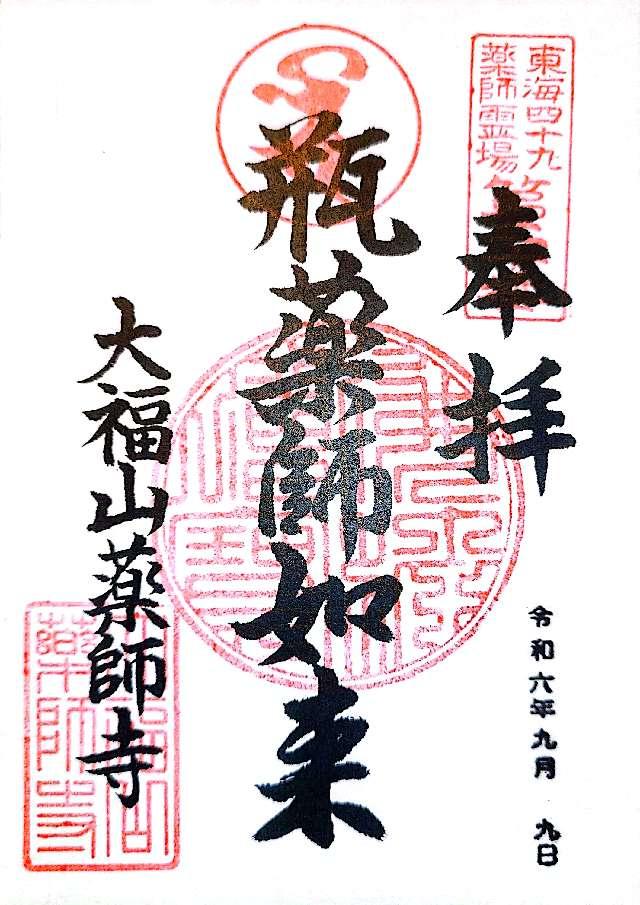 東海四十九
薬師霊場
奉拝
令和六年九月九日
瓶薬師如来
大福山薬師寺